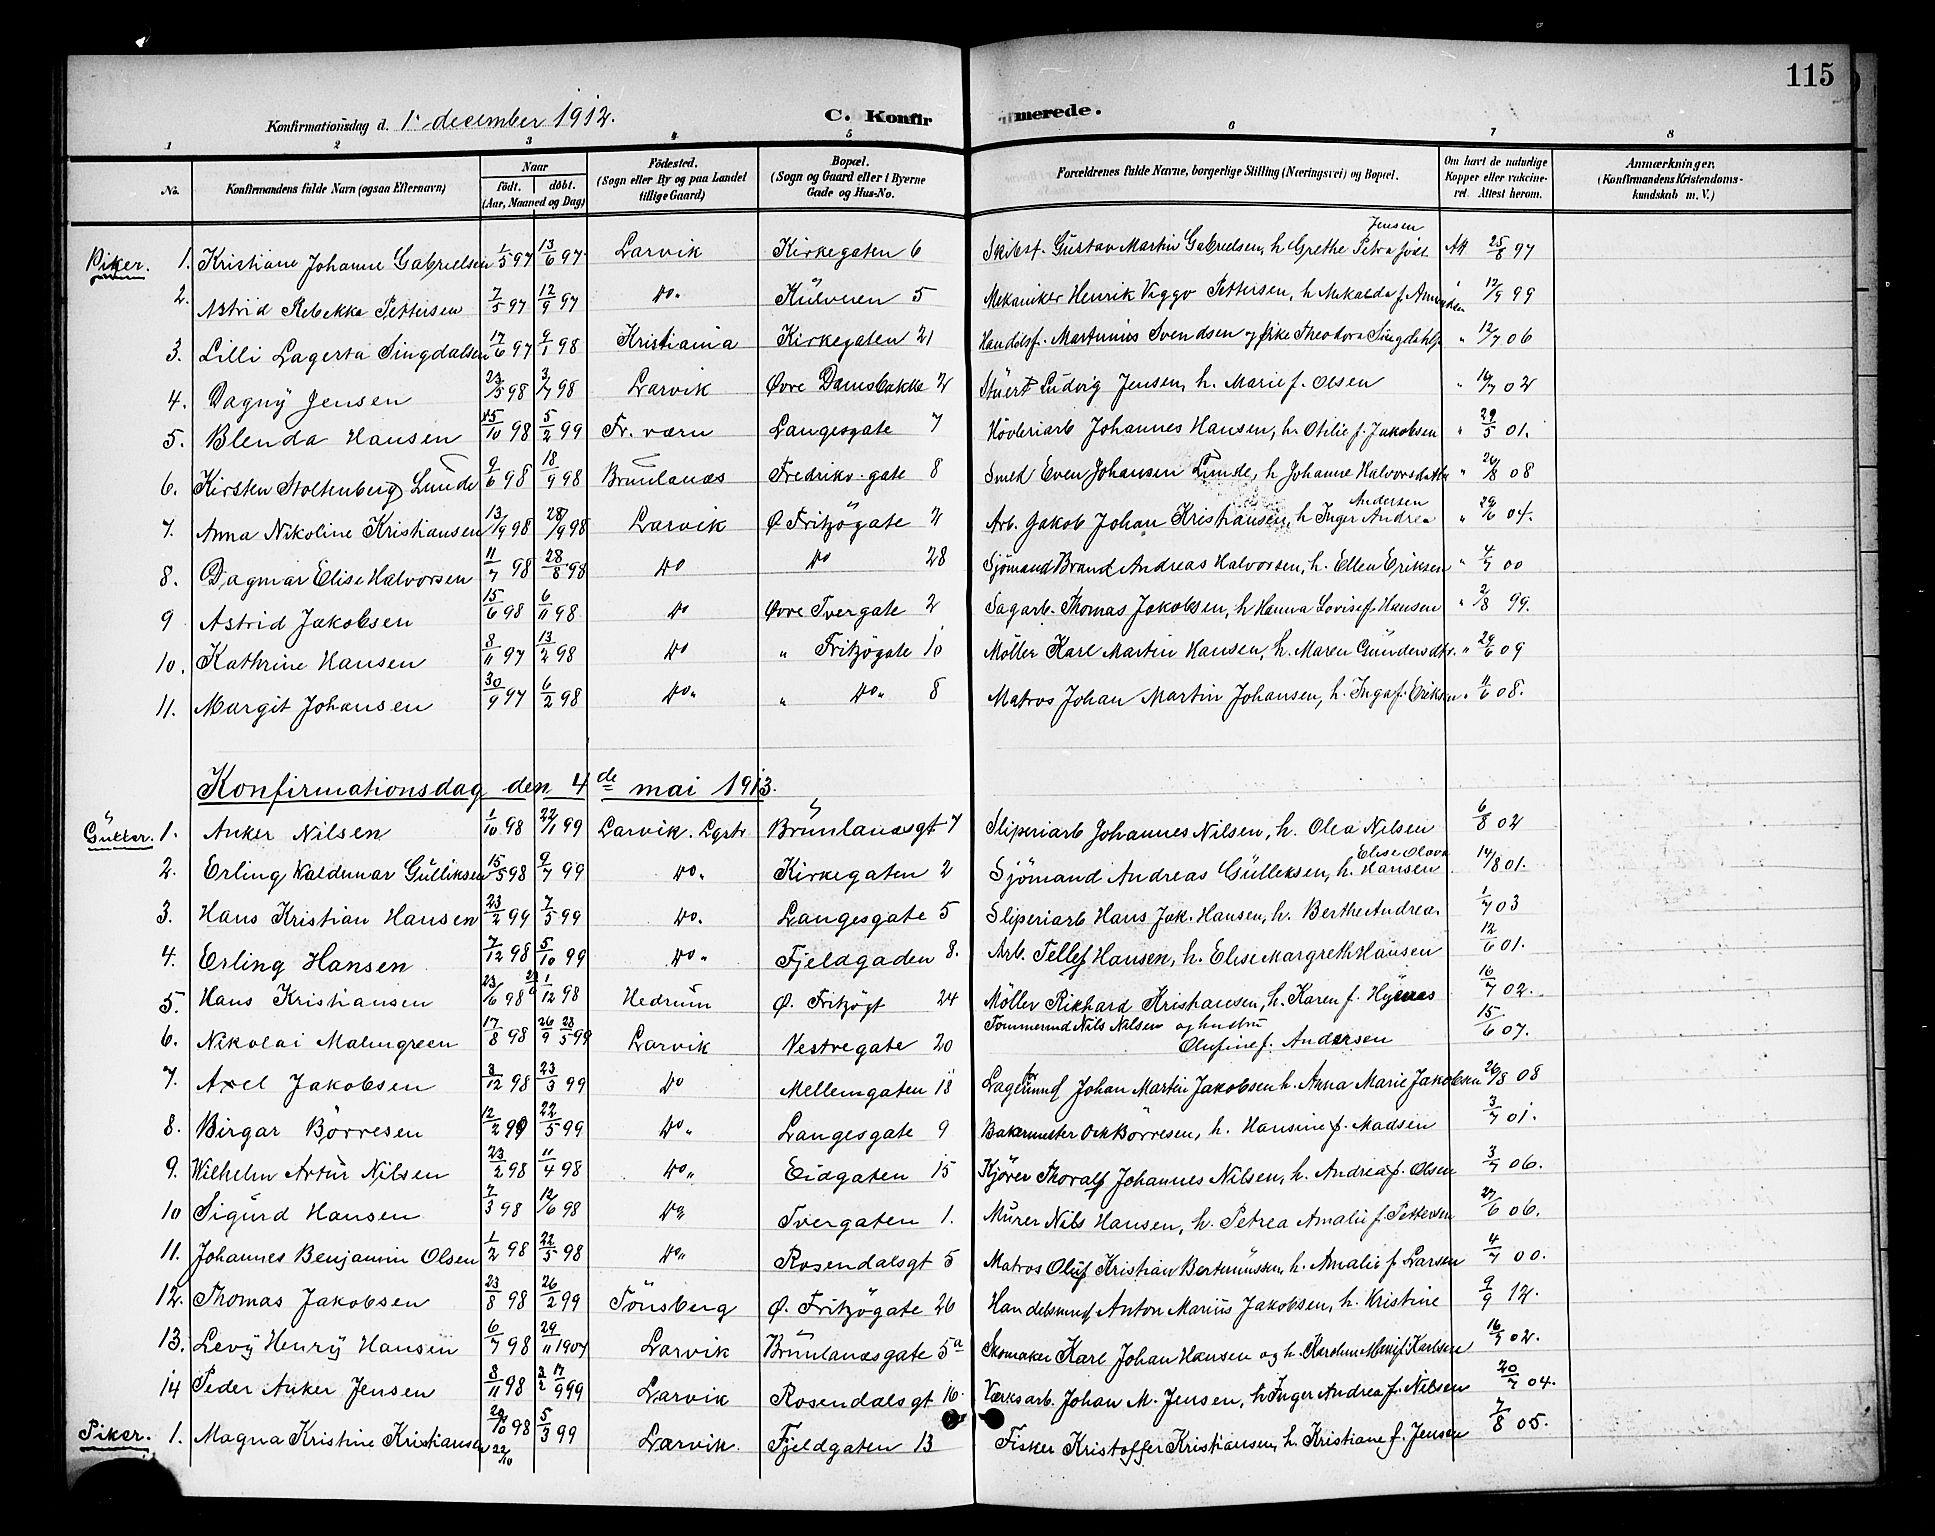 115
Konfirmationsdag d. 1. december 1912. C. Konfirmerede.
1 2 3 4 5 6 7 8
No. Konfirmandens fulde Navn (ogsaa Efternavn) Naar født. døbt. (Aar, Maaned og Dag) Födested. (Sogn eller By og paa Landet tillige Gaard) Bopæl. (Sogn og Gaard eller i Byerne Gade og Hus-No. Forældrenes fulde Navne, borgerlige Stilling (Næringsvei) og Bopæl. Om havt de naturlige Kopper eller vakcineret. Attest herom. Anmærkninger. (Konfirmandens Kristendomskundskab m. V.)
Piker. 1. Kristiane Johanne Gabrielsen 1/5 97 13/6 97 Larvik Kirkegaten 6 Skibst. Gustav Martin Gabrielsen, h Grethe Petra född Jensen Att 25/8 97
2. Astrid Rebekka Pettersen 7/5 97 12/9 97 Do. Külveien 5 Mekaniker Henrik Viggo Pettersen, h. Mekalda f. Amundsen " 12/9 99
3. Lilli Lagerta Singdalsen 17/6 97 9/1 98 Kristiania Kirkegaten 21 Handelsf. Martinius Svendsen og Theodora " 12/7 06
4. Dagny Jensen 23/5 98 3/7 98 Larvik Øvre Damsbakke 2 Stuert Ludvig Jensen, h. Marie f. Olsen " 16/7 02
5. Blenda Hansen 15/10 98 5/2 99 Fr. værn Langesgate 7 Hövleriarb Johannes Hansen, h. Otilie f. Jakobsen " 29/5 01.
6. Kirsten Stoltenberg Lunde 9/6 98 18/9 98 Brunlanæs Fredriksv. gate 8 Smed Even Johansen Lunde, h Johanne Halvorsdatter " 26/8 08
7. Anna Nikoline Kristiansen 13/9 98 28/9 98 Larvik Ø Fritzögate 2 Arb. Jakob Johan Kristiansen, h Inger Andrea Andersen " 29/6 04.
8. Dagmar Elise Halvorsen 11/7 98 28/8 98 Do Do 28 Sjömand Brand Andreas Halvorsen, h. Ellen Eriksen " 4/7 00
9 Astrid Jakobsen 15/6 98 6/11 98 Do Øvre Tvergate 2 Sagarb. Thomas Jakobsen, h Hanna Lovise f. Hansen " 2/8 99.
10. Kathrine Hansen 8/11 97 13/2 98 Do " Fritzögate 10 Möller Karl Martin Hansen, h. Maren Gundersdtr. " 29/6 09
11. Margit Johansen 30/9 97 6/2 98 Do. " Do. 8 Matros Johan Martin Johansen, h. Inga f. Eriksen " 11/6 08.
Konfirmationsdag den 4de mai 1913.
Gutter. 1. Anker Nilsen 1/10 98 22/1 99 Larvik. Lgstr Brunlanæsgt 7 Sliperiarb Johannes Nilsen, h. Olea Nilsen 6/8 02
2. Erling Valdemar Gulliksen 15/5 98 9/7 99 Do. Kirkegaten 2 Sjömand Andreas Gulleksen, h. Elise Olava Hansen 14/8 01.
3. Hans Kristian Hansen 23/2 99 7/5 99 Do. Langesgate 5 Sliperiarb Hans Jak. Hansen, h. Berthe Andrea. 1/7 03
4. Erling Hansen 7/12 98 5/10 99 Do. Fjeldgaden 8. Arb. Tellef Hansen, h. Elise Margreth Hansen 12/6 01.
5. Hans Kristiansen 23/6 98 1/12 98 Hedrum Ø. Fritzögt 24 Möller Rikhard Kristiansen, h. Karen f. 16/7 02.
6. Nikolai Malmgreen 17/8 98 26/9 28/5 99 Larvik Vestregate 20 Tømmermd Nils Nilsen og hustru Olufine f. Andersen 15/6 07.
7. Axel Jakobsen 3/12 98 23/3 99 Do Mellemgaten 18 Johan Martin Jakobsen h. Anna Marie Jakobsen 26/8 08
8. Birgar Börresen 12/2 99 22/5 99 Do. Langesgate 9 Bakermester Börresen, h. Hansine f. Madsen 3/7 01.
9. Wilhelm Artur Nilsen 23/2 98 11/4 98 Do. Eidgaten 15 Kjörer Thoralf Johannes Nilsen, h. Andrea f. Olsen 3/7 06.
10 Sigurd Hansen 7/3 98 12/6 98 Do Tvergaten 1. Murer Nils Hansen, h. Petrea Amalie f. Pettersen 27/6 06.
11. Johannes Benjamin Olsen 1/2 98 22/5 98 Do. Rosendalsgt 5 Matros Oluf Kristian h. Amalie f. Larsen 4/7 00.
12. Thomas Jakobsen 23/8 98 26/2 99 Tönsberg Ø. Fritzögate 26 Handelsmd Anton Marius Jakobsen, h. Kristine 9/9 12.
13. Levy Henry Hansen 6/7 98 29/11 1907 Larvik Brunlanæsgate 5a Skomaker Karl Johan Hansen og h. Karoline f. Karlsen 16/7 02.
14 Peder Anker Jensen 8/11 98 3/2 17/9 99 Larvik Rosendalsgt 16. Værksarb. Johan M. Jensen, h Inger Andrea f. Nilsen 20/7 04.
Piker. 1. Magna Kristine Kristiansen 20/10 98 22/10 5/3 99 Larvik. Fjeldgaten 13 Fisker Kristoffer Kristiansen, h. Kristiane f. Jensen 7/8 05.